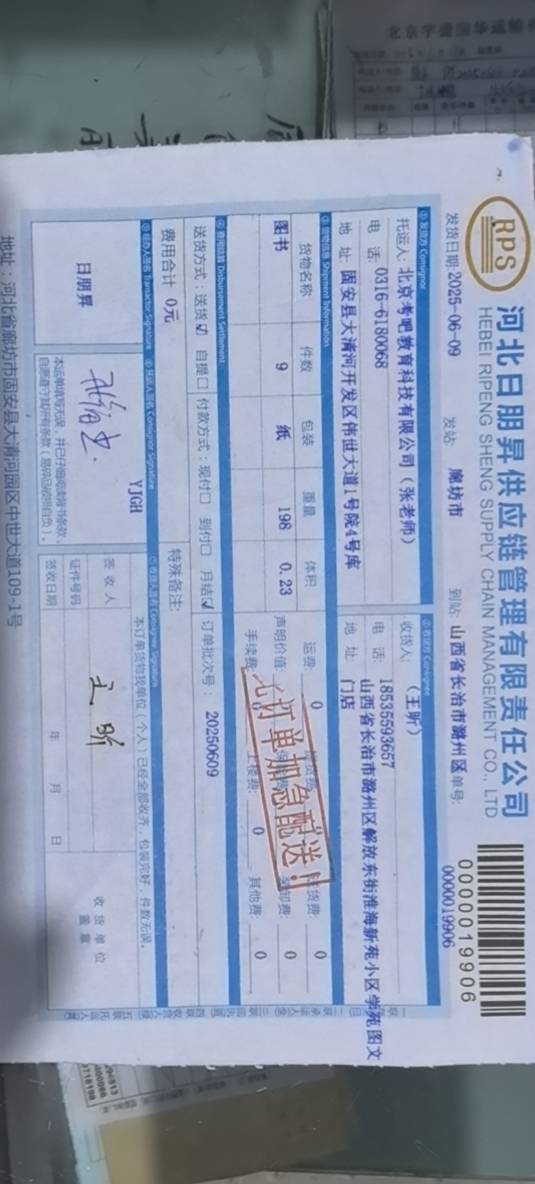 RPS
河北日朋昇供应链管理有限责任公司
HEBEI RIPENG SHENG SUPPLY CHAIN MANAGEMENT CO., LTD
0000019906
发货日期: 2025-06-09 发站: 廊坊市 到站: 山西省长治市潞州区 单号: 0000019906
①发货方 Consignor ②收货方 Consignee
托运人: 北京考吧教育科技有限公司(张老师) 收货人: (王昕)
电 话: 0316-6180068 电 话: 18535593657
地 址: 固安县大清河开发区伟世大道1号院4号库 地 址: 山西省长治市潞州区解放东街淮海新苑小区学苑图文门店
③货物信息 Shipment Information
货物名称 件数 包装 重量 体积
图书 9 纸 198 0.23
运费: 0 送货费: 0
声明价值: 装卸费: 0
手续费: 上楼费: 0 其他费: 0
订单加急配送!
④费用结算 Disbursement Settlement
送货方式: 送货☑ 自提□ 付款方式: 现付□ 到付□ 月结☑ 订单批次号: 20250609
费用合计 0元 特殊备注:
⑤经办人签名 Transactor Signature ⑥托运人签名 Consignor Signature ⑦收货人签名 Consignee Signature
日朋昇
YJGH
本运单填写无误,并已仔细阅读背书条款,
自愿遵守其所有条款(易碎品破损自负)。
本订单货物我单位(个人)已经全部收齐,包装完好,件数无误。
签收人 王昕
证件号码
签收日期 年 月 日
收货单位
盖章
地址:河北省廊坊市固安县大清河园区中世大道109-1号